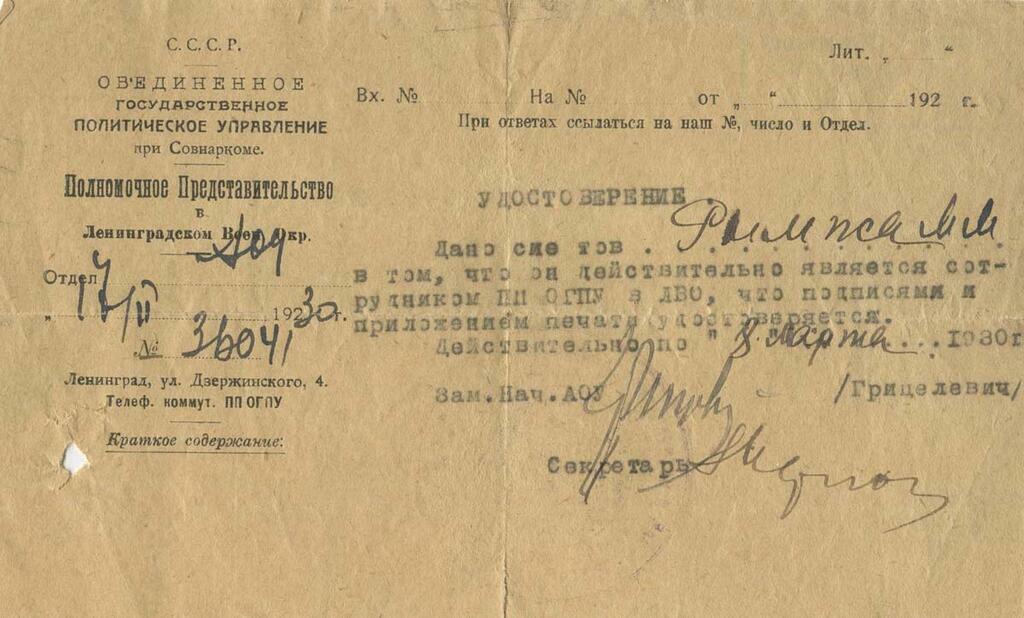 С. С. С. Р.
ОБ'ЕДИНЕННОЕ
ГОСУДАРСТВЕННОЕ
ПОЛИТИЧЕСКОЕ УПРАВЛЕНИЕ
при Совнаркоме.
Полномочное Представительство
в
Ленинградском Воен. Окр.
АОУ
Отдел
„17/II 192 30 г.
№ 36041
Ленинград, ул. Дзержинского, 4.
Телеф. коммут. ПП ОГПУ
Краткое содержание:
Лит. „ “
Вх. № На № от „ “ 192 г.
При ответах ссылаться на наш №, число и Отдел.
УДОСТОВЕРЕНИЕ.
Дано сие тов. Рымжа М М
в том, что он действительно является сот-
рудником ПП ОГПУ в ЛВО, что подписями и
приложением печати удостоверяется.
Действительно по " 8 " марта ... 1930г
Зам.Нач.АОУ /Грицелевич/
Секретарь